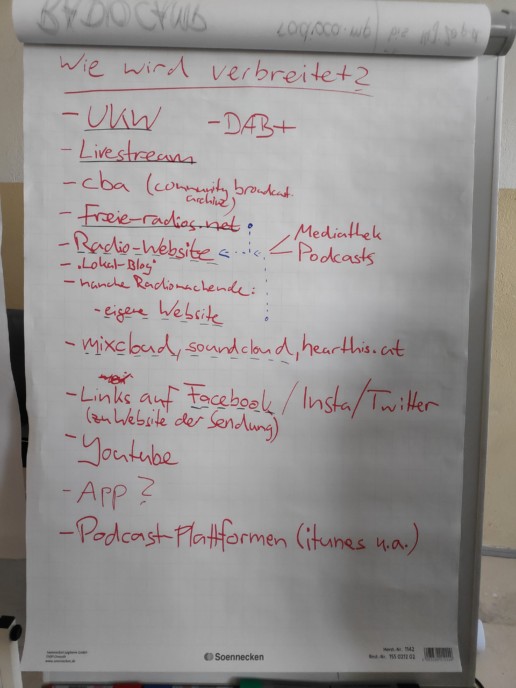 Wie wird verbreitet?
- UKW - DAB+
- Livestream
- cba (community broadcast
archive)
- Freie-radios.net
Mediathek
- Radio-Website
Podcasts
- "Lokal-Blog"
- manche Radiomachende:
- eigene Website
- mixcloud, soundcloud, hearthis.at
- Links auf Facebook / Insta / Twitter
(zu Website der Sendung)
- Youtube
- App?
- Podcast-Plattformen (itunes u.a.)
Soennecken